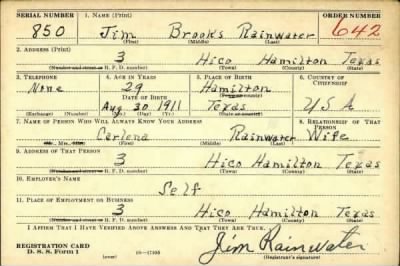 SERIAL NUMBER 1. NAME (Print) ORDER NUMBER
850 Jim Brooks Rainwater 642
(First) (Middle) (Last)
2. ADDRESS (Print)
3 Hico Hamilton Texas
(Number and street or R. F. D. number) (Town) (County) (State)
3. TELEPHONE 4. AGE IN YEARS 5. PLACE OF BIRTH 6. COUNTRY OF CITIZENSHIP
None 29 Hamilton
DATE OF BIRTH (Town or county)
Aug 30 1911 Texas USA
(Exchange) (Number) (Mo.) (Day) (Yr.) (State or country)
7. NAME OF PERSON WHO WILL ALWAYS KNOW YOUR ADDRESS 8. RELATIONSHIP OF THAT PERSON
Carlena Rainwater Wife
(Mr., Mrs., Miss) (First) (Middle) (Last)
9. ADDRESS OF THAT PERSON
3 Hico Hamilton Texas
(Number and street or R. F. D. number) (Town) (County) (State)
10. EMPLOYER'S NAME
Self
11. PLACE OF EMPLOYMENT OR BUSINESS
3 Hico Hamilton Texas
(Number and street or R. F. D. number) (Town) (County) (State)
I AFFIRM THAT I HAVE VERIFIED ABOVE ANSWERS AND THAT THEY ARE TRUE.
REGISTRATION CARD
D. S. S. Form 1 (over) 16—17105 Jim Rainwater
(Registrant's signature)